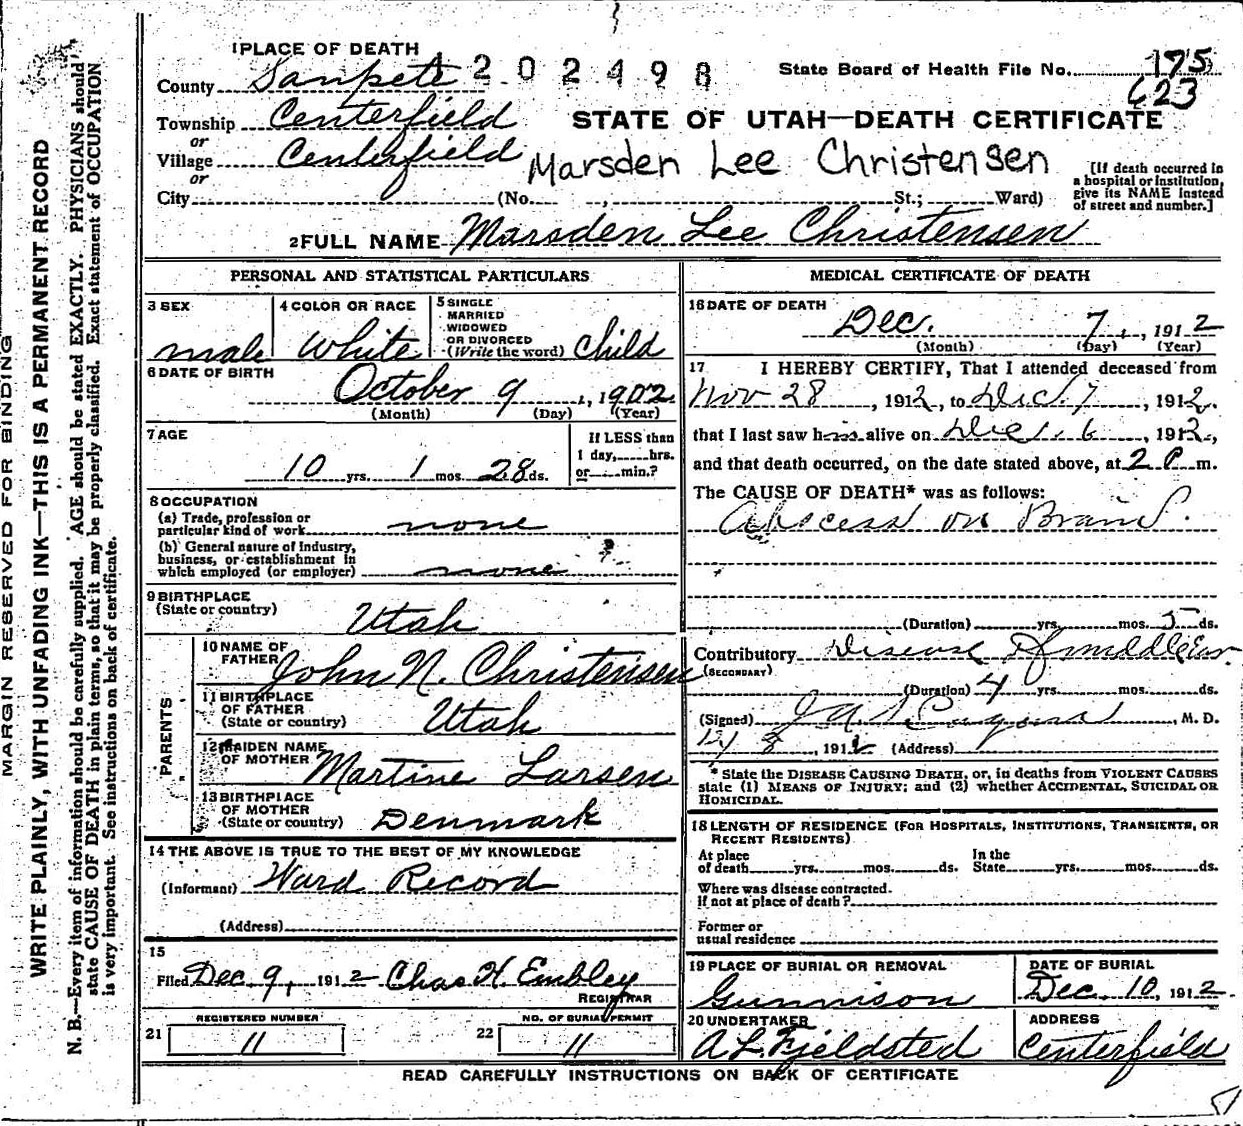 1 PLACE OF DEATH
County Sanpete 1202498 State Board of Health File No. 175
623
Township Centerfield STATE OF UTAH—DEATH CERTIFICATE
or
Village Centerfield Marsden Lee Christensen
or
City (No. , St.; Ward)
[If death occurred in
a hospital or institution,
give its NAME instead
of street and number.]
2 FULL NAME Marsden Lee Christensen
PERSONAL AND STATISTICAL PARTICULARS
3 SEX
male
4 COLOR OR RACE
White
5 SINGLE
MARRIED
WIDOWED
OR DIVORCED
(Write the word) Child
6 DATE OF BIRTH
October 9, 1902
(Month) (Day) (Year)
7 AGE
10 yrs. 1 mos. 28 ds.
If LESS than
1 day, hrs.
or min.?
8 OCCUPATION
(a) Trade, profession or
particular kind of work none
(b) General nature of industry,
business, or establishment in
which employed (or employer) none
9 BIRTHPLACE
(State or country)
Utah
PARENTS
10 NAME OF
FATHER John N. Christensen
11 BIRTHPLACE
OF FATHER
(State or country) Utah
12 MAIDEN NAME
OF MOTHER Martine Larsen
13 BIRTHPLACE
OF MOTHER
(State or country) Denmark
14 THE ABOVE IS TRUE TO THE BEST OF MY KNOWLEDGE
(Informant) Ward Record
(Address)
15
Filed Dec. 9, 1912 Chas H. Embley
REGISTRAR
REGISTERED NUMBER
21 11
NO. OF BURIAL PERMIT
22 11
MEDICAL CERTIFICATE OF DEATH
16 DATE OF DEATH
Dec. 7, 1912
(Month) (Day) (Year)
17 I HEREBY CERTIFY, That I attended deceased from
Nov 28, 1912, to Dec. 7, 1912.
that I last saw him alive on Dec. 6, 1912,
and that death occurred, on the date stated above, at 2 P m.
The CAUSE OF DEATH* was as follows:
Abscess on Brain.
(Duration) yrs. mos. 5 ds.
Contributory Disease of middle Ear
(SECONDARY)
(Duration) 4 yrs. mos. ds.
(Signed) , M. D.
12/8, 1912 (Address)
* State the DISEASE CAUSING DEATH, or, in deaths from VIOLENT CAUSES
state (1) MEANS OF INJURY; and (2) whether ACCIDENTAL, SUICIDAL OR
HOMICIDAL.
18 LENGTH OF RESIDENCE (FOR HOSPITALS, INSTITUTIONS, TRANSIENTS, OR
RECENT RESIDENTS)
At place
of death yrs. mos. ds.
In the
State yrs. mos. ds.
Where was disease contracted.
If not at place of death?
Former or
usual residence
19 PLACE OF BURIAL OR REMOVAL
Gunnison
DATE OF BURIAL
Dec. 10, 1912.
20 UNDERTAKER
A L. Fjeldsted
ADDRESS
Centerfield
READ CAREFULLY INSTRUCTIONS ON BACK OF CERTIFICATE
MARGIN RESERVED FOR BINDING
WRITE PLAINLY, WITH UNFADING INK—THIS IS A PERMANENT RECORD
N. B.—Every item of information should be carefully supplied. AGE should be stated EXACTLY. PHYSICIANS should
state CAUSE OF DEATH in plain terms, so that it may be properly classified. Exact statement of OCCUPATION
is very important. See instructions on back of certificate.